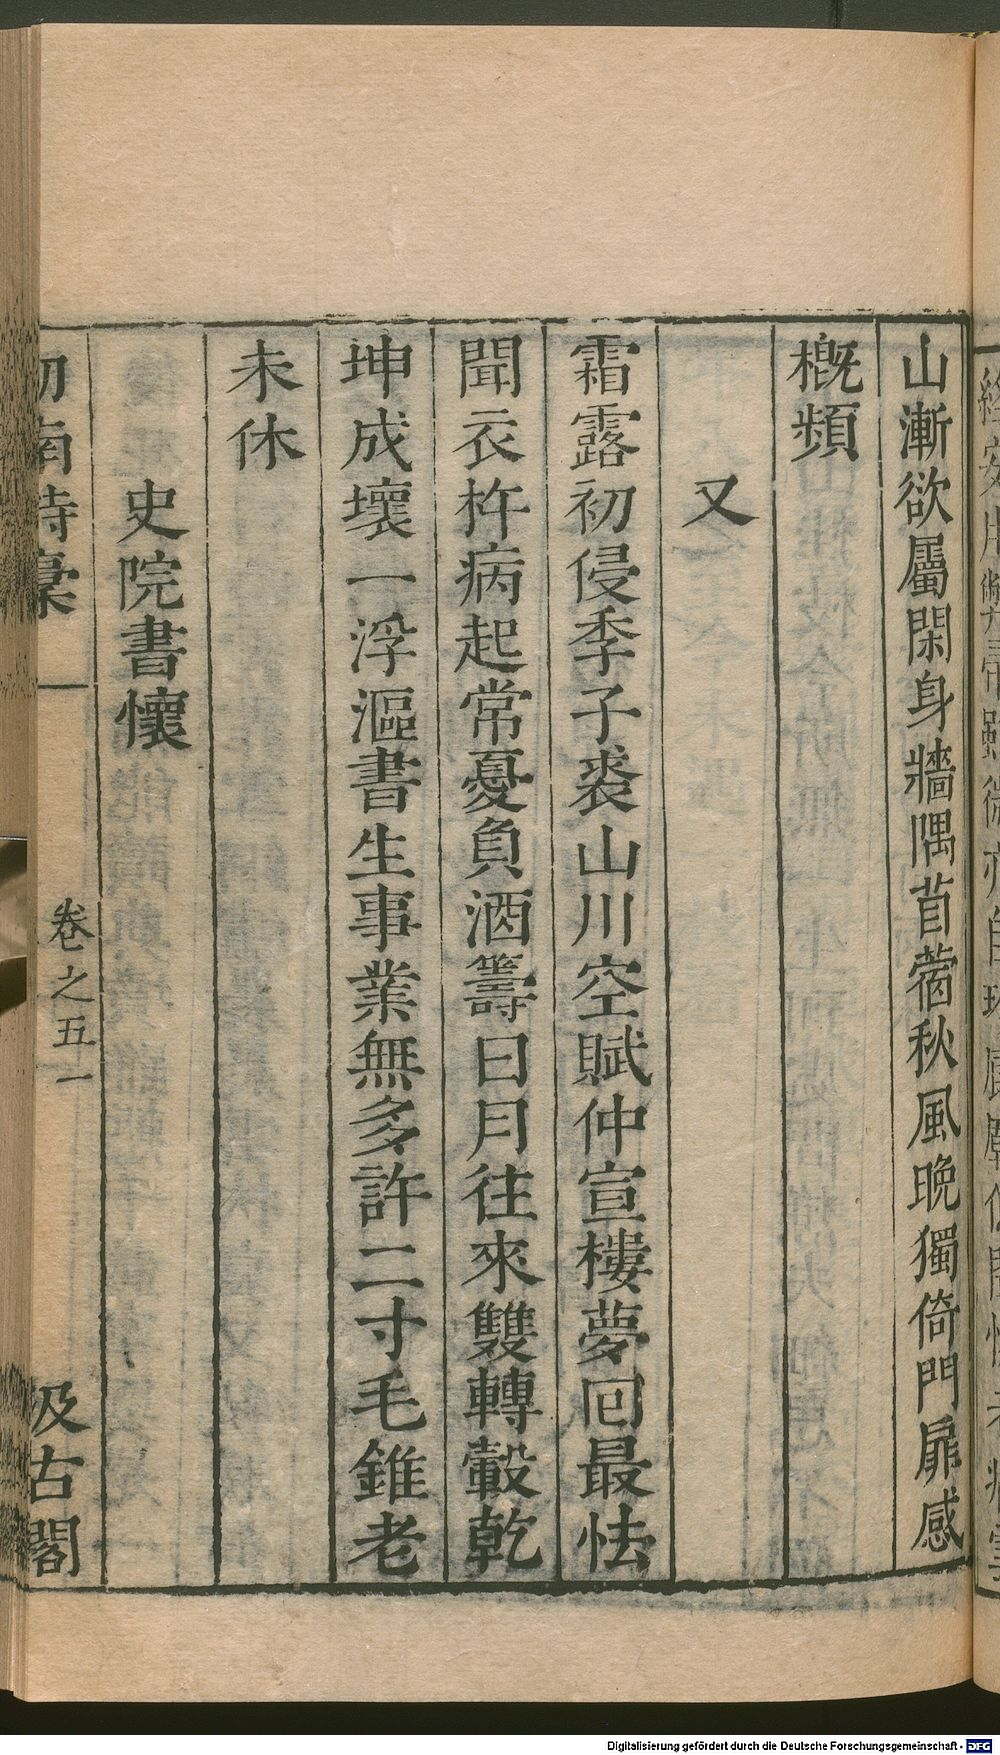 山漸欲屬閑身牆隅苜蓿秋風晚獨倚門扉感
概頻
又
霜露初侵季子裘山川空賦仲宣樓夢囘最怯
聞衣杵病起常憂負酒籌日月往來雙轉轂乾
坤成壞一浮漚書生事業無多許二寸毛錐老
未休
史院書懷
南詩稾
卷之五
一
汲古閣
Digitalisierung gefördert durch die Deutsche Forschungsgemeinschaft - DFG